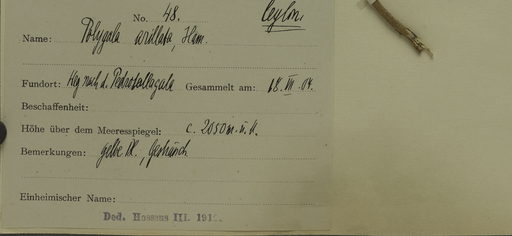 No. 48. Ceylon.
Name: Polygala arillata, Ham.
Fundort: Weg nach d. Pedrotallagala Gesammelt am: 18. III. 04.
Beschaffenheit:
Höhe über dem Meeresspiegel: c. 2050 m. ü. M.
Bemerkungen: gelbe Bl., Gesträuch
Einheimischer Name:
Ded. Hosseus III. 191